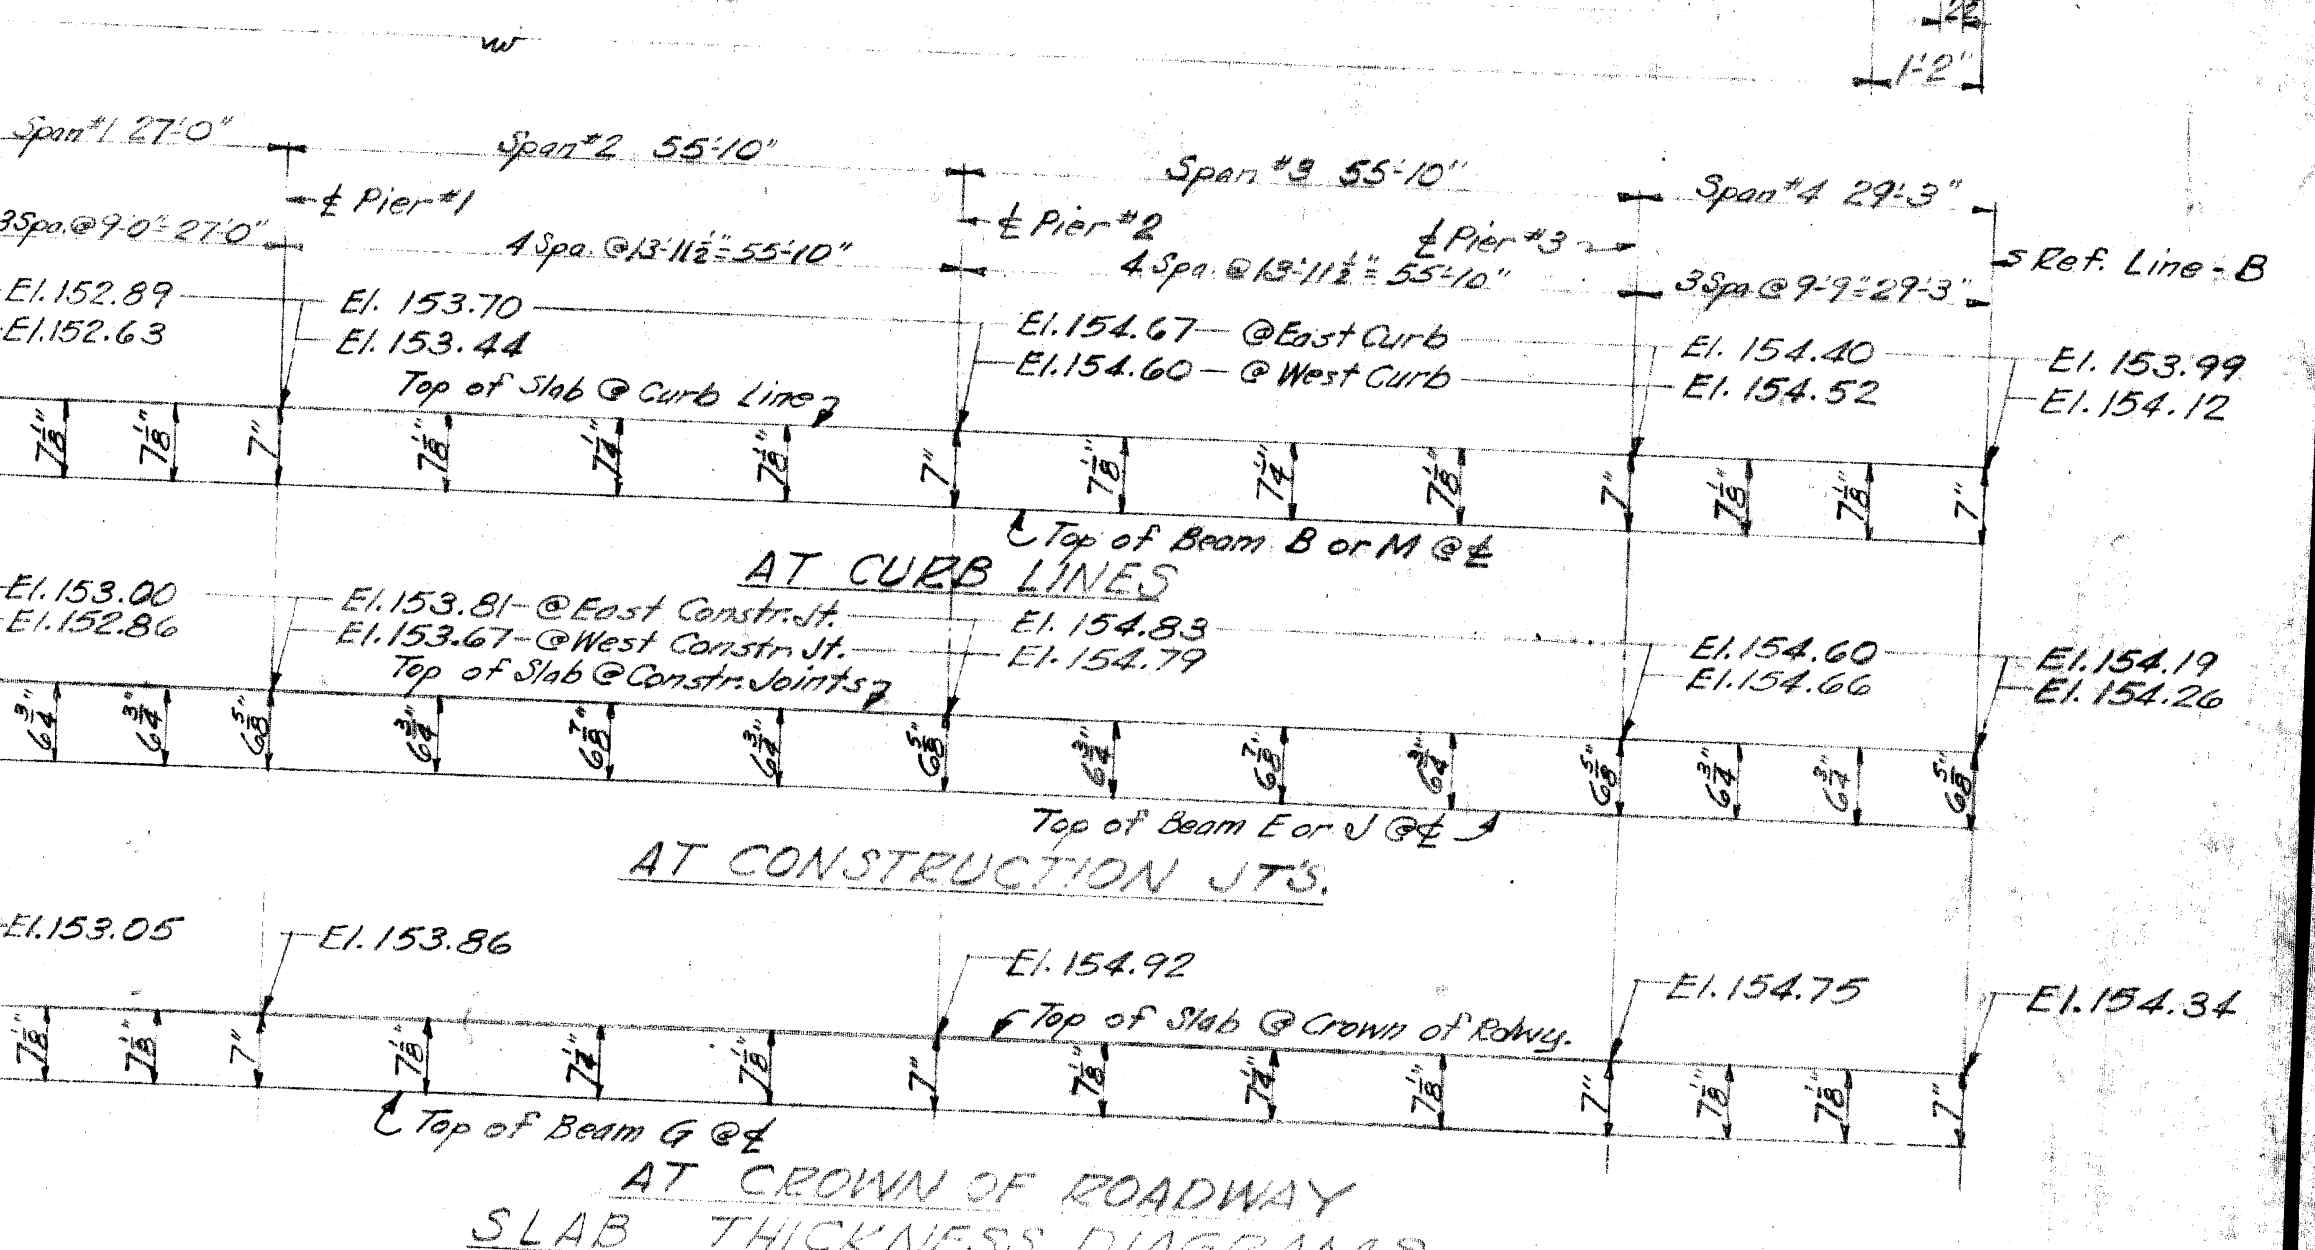 22
1'-2"
w
Span #1 27'-0"
Span #2 55'-10"
Span #3 55'-10"
Span #4 29'-3"
℄ Pier #1
℄ Pier #2
℄ Pier #3
3 Spa. @ 9'-0" = 27'-0"
4 Spa. @ 13'-11½" = 55'-10"
4 Spa. @ 13'-11½" = 55'-10"
3 Spa @ 9'-9" = 29'-3"
Ref. Line - B
El. 152.89
El. 152.63
El. 153.70
El. 153.44
El. 154.67 - @ East Curb
El. 154.60 - @ West Curb
El. 154.40
El. 154.52
El. 153.99
El. 154.12
Top of Slab @ Curb Line
7⅛" 7⅛" 7" 7⅛" 7¼" 7⅛" 7" 7⅛" 7¼" 7⅛" 7" 7⅛" 7⅛" 7"
Top of Beam B or M @ ℄
AT CURB LINES
El. 153.00
El. 152.86
El. 153.81 - @ East Constr. Jt.
El. 153.67 - @ West Constr. Jt.
El. 154.83
El. 154.79
El. 154.60
El. 154.66
El. 154.19
El. 154.26
Top of Slab @ Constr. Joints
6¾" 6¾" 6⅝" 6¾" 6⅞" 6¾" 6⅝" 6¾" 6⅞" 6¾" 6⅝" 6¾" 6¾" 6⅝"
Top of Beam E or J @ ℄
AT CONSTRUCTION JT'S.
El. 153.05
El. 153.86
El. 154.92
El. 154.75
El. 154.34
Top of Slab @ Crown of Rdwy.
7⅛" 7⅛" 7" 7⅛" 7¼" 7⅛" 7" 7⅛" 7¼" 7⅛" 7" 7⅛" 7⅛" 7"
Top of Beam G @ ℄
AT CROWN OF ROADWAY
SLAB THICKNESS DIAGRAMS